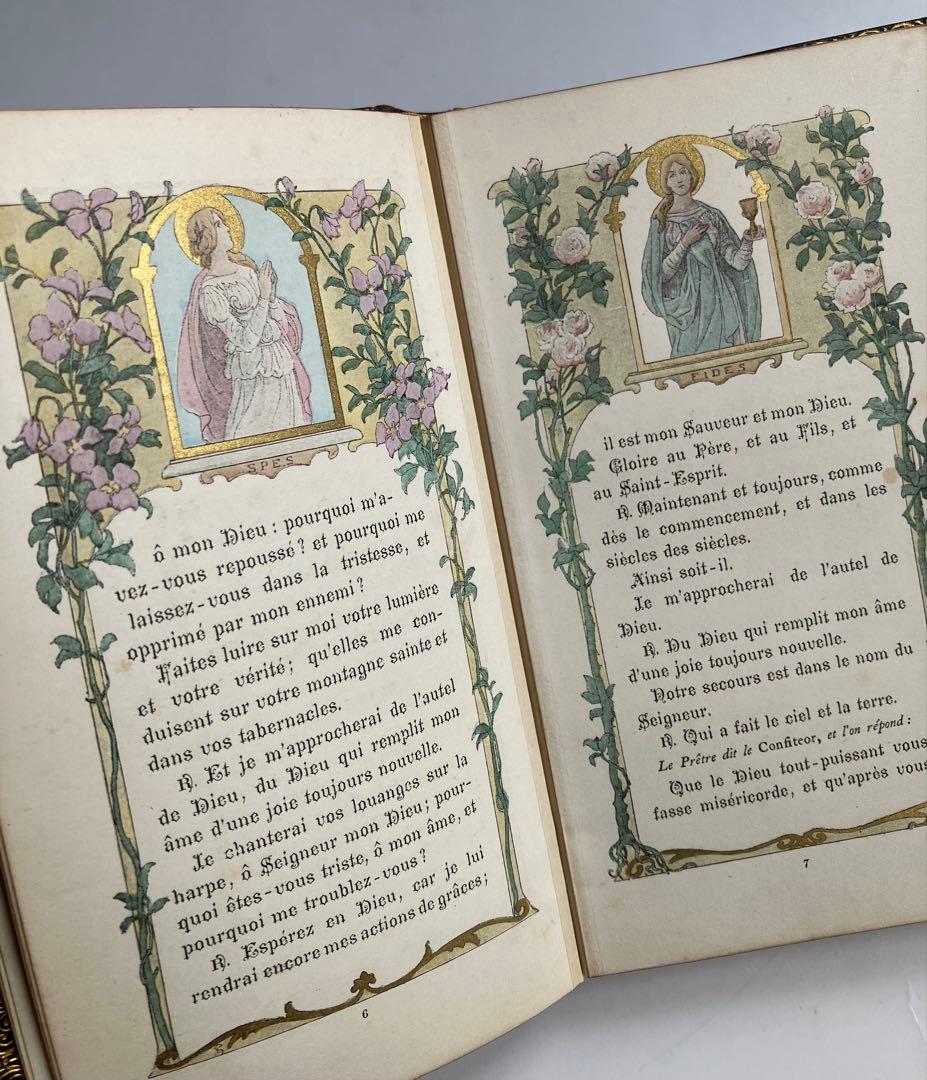 SPES
ô mon Dieu : pourquoi m'a-
vez-vous repoussé ? et pourquoi me
laissez-vous dans la tristesse, et
opprimé par mon ennemi ?
Faites luire sur moi votre lumière
et votre vérité ; qu'elles me con-
duisent sur votre montagne sainte et
dans vos tabernacles.
R. Et je m'approcherai de l'autel
de Dieu, du Dieu qui remplit mon
âme d'une joie toujours nouvelle.
Je chanterai vos louanges sur la
harpe, ô Seigneur mon Dieu ; pour-
quoi êtes-vous triste, ô mon âme, et
pourquoi me troublez-vous ?
R. Espérez en Dieu, car je lui
rendrai encore mes actions de grâces ;
6
FIDES
il est mon Sauveur et mon Dieu.
Gloire au Père, et au Fils, et
au Saint-Esprit.
R. Maintenant et toujours, comme
dès le commencement, et dans les
siècles des siècles.
Ainsi soit-il.
Je m'approcherai de l'autel de
Dieu.
R. Du Dieu qui remplit mon âme
d'une joie toujours nouvelle.
Notre secours est dans le nom du
Seigneur.
R. Qui a fait le ciel et la terre.
Le Prêtre dit le Confiteor, et l'on répond :
Que le Dieu tout-puissant vous
fasse miséricorde, et qu'après vous
7